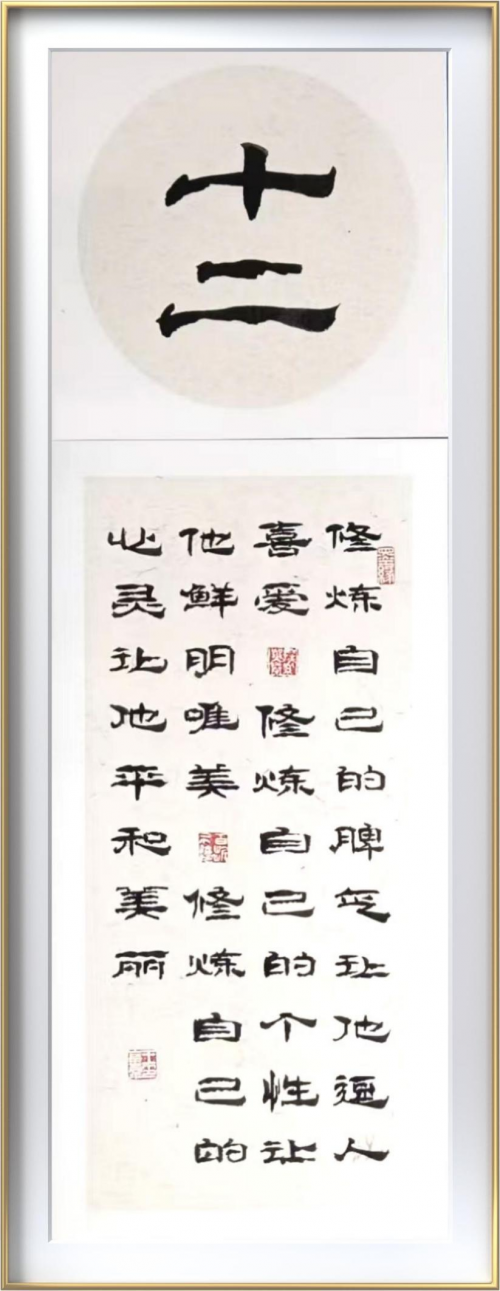 十二
修炼自己的脾气让他逗人
喜爱修炼自己的个性让
他鲜明唯美修炼自己的
心灵让他平和美丽